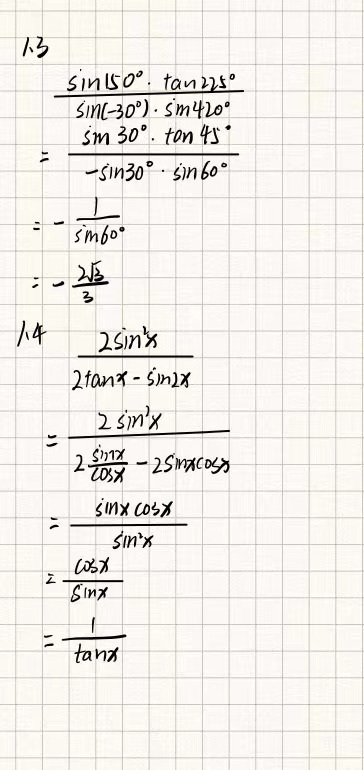 1.3
sin150°·tan225° / sin(-30°)·sin420°
= sin30°·tan45° / -sin30°·sin60°
= - 1 / sin60°
= - 2√3 / 3
1.4
2sin²x / 2tanx - sin2x
= 2sin²x / 2 sinx/cosx - 2sinxcosx
= sinxcosx / sin²x
= cosx / sinx
= 1 / tanx